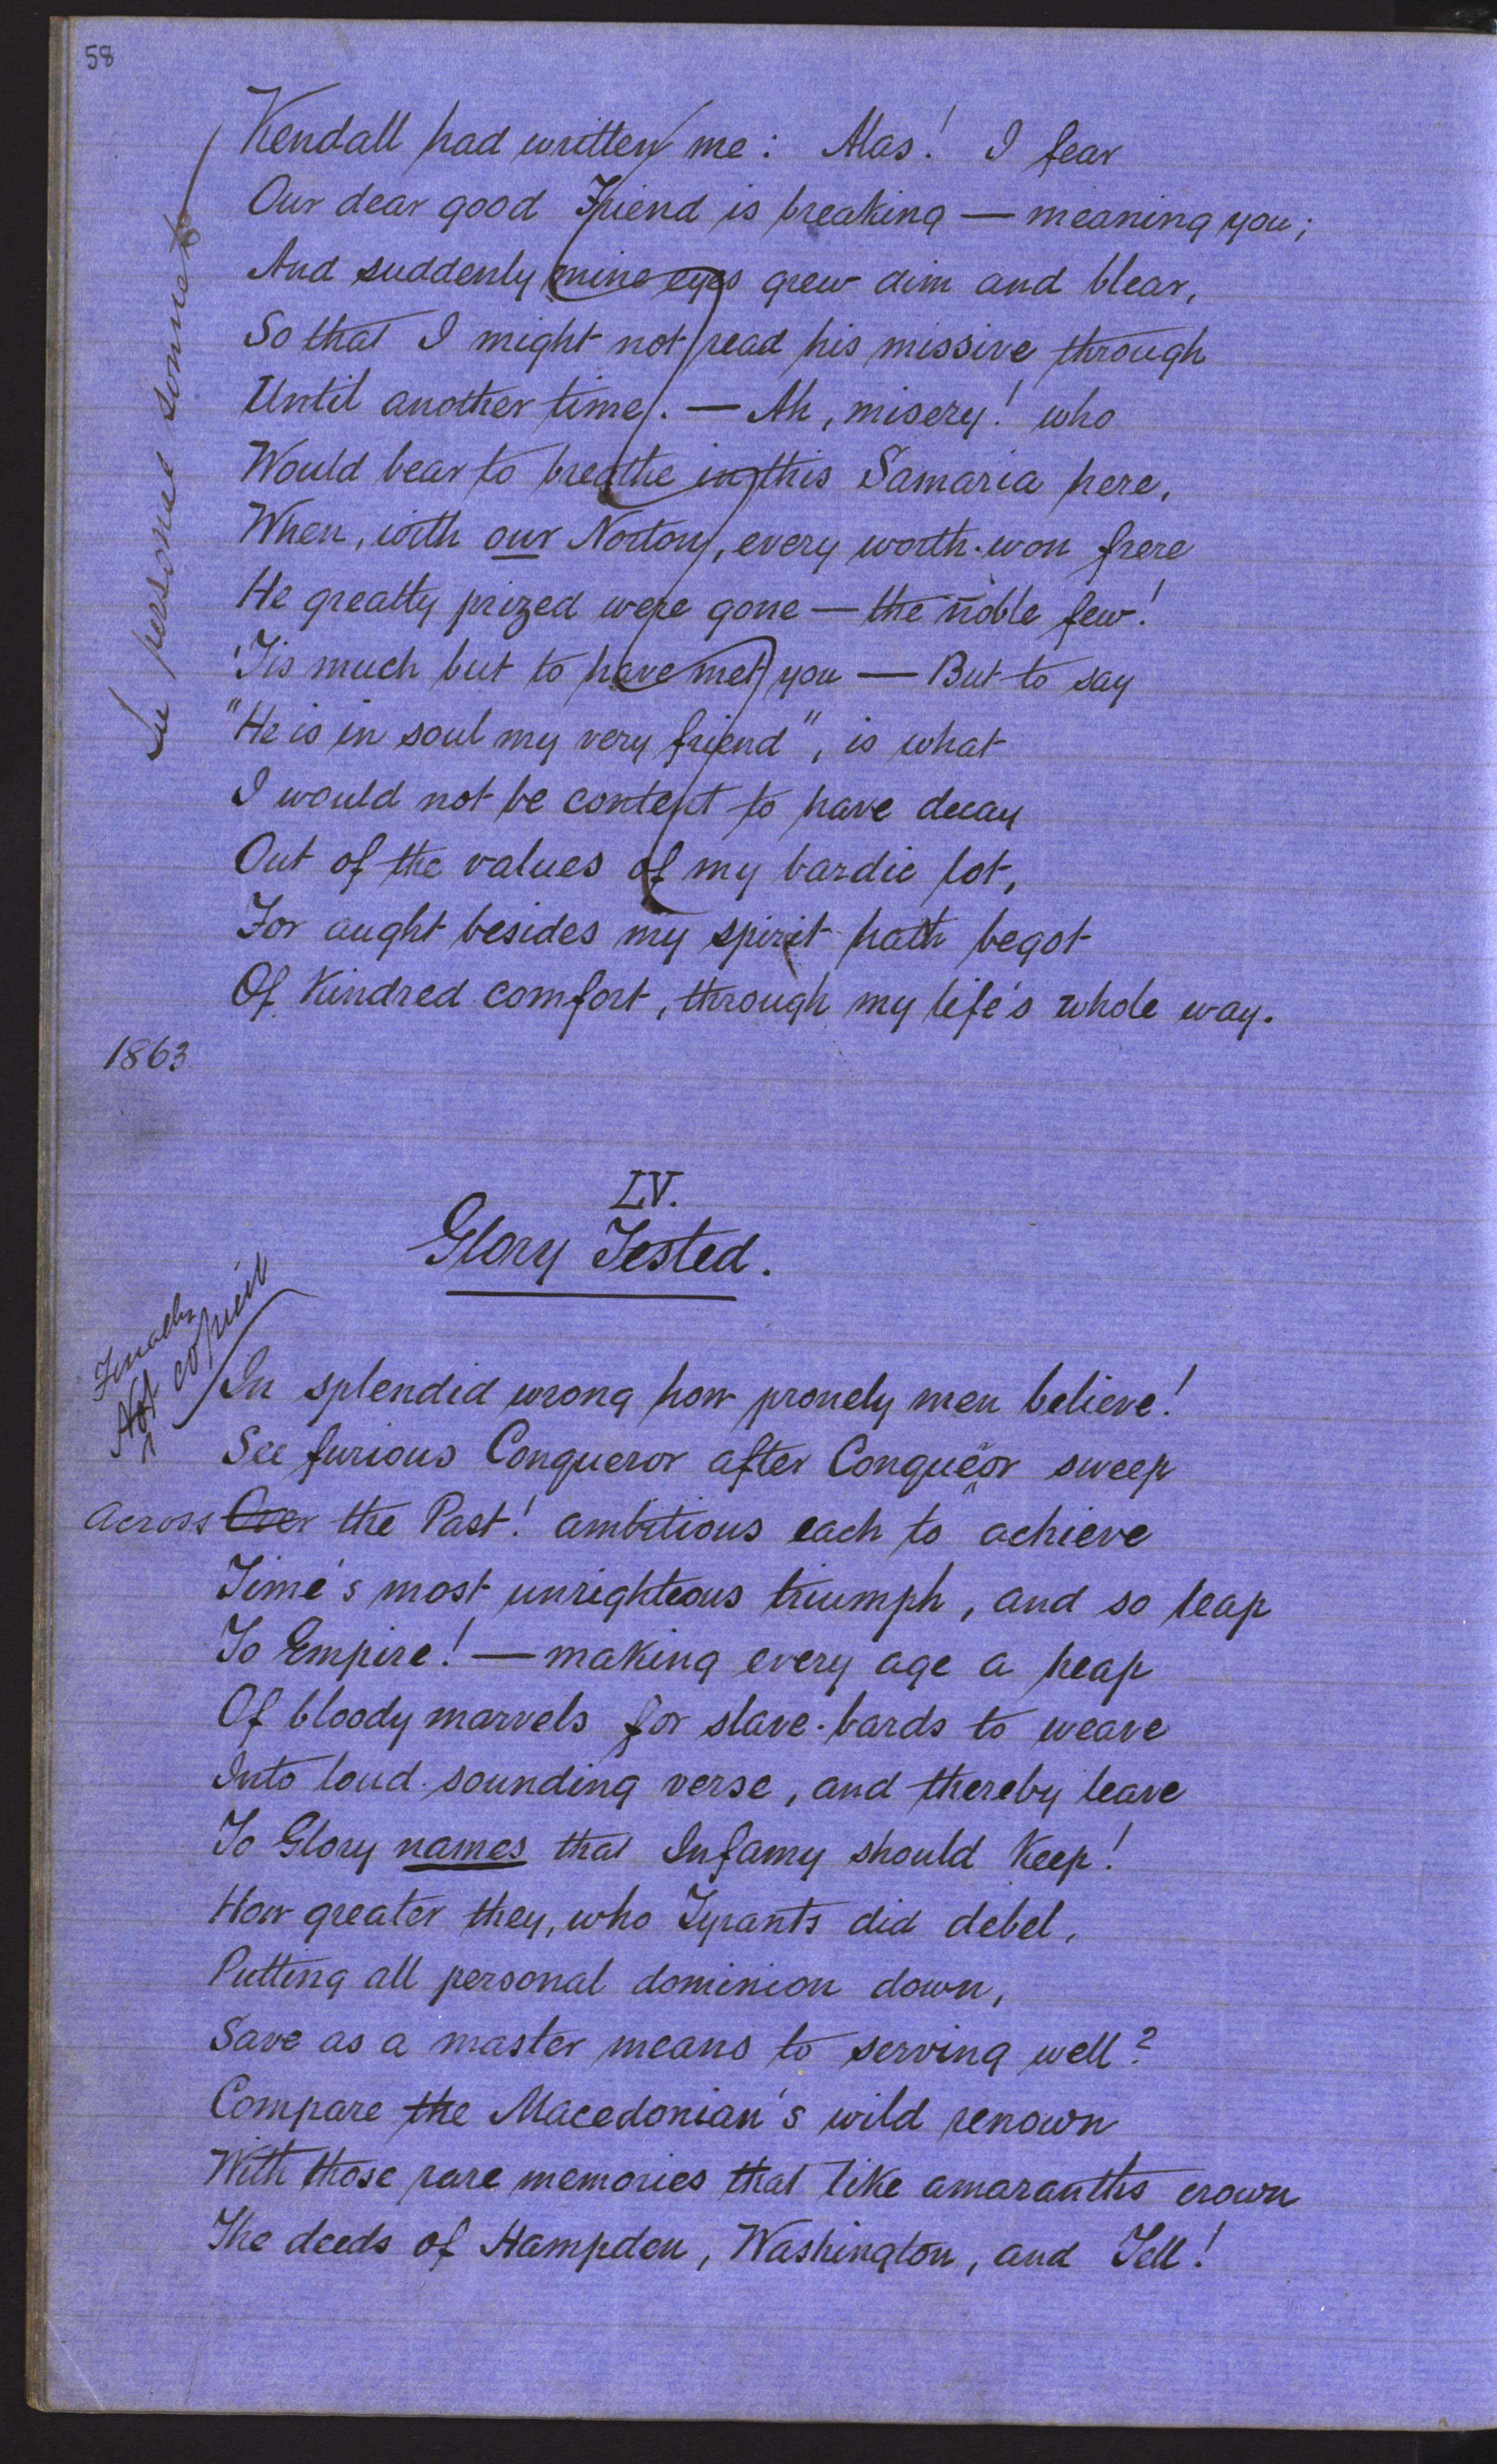 58
Kendall had written me: Alas! I fear
Our dear good Friend is breaking — meaning you;
And suddenly mine eyes grew dim and blear,
So that I might not read his missive through
Until another time. — Ah, misery! who
Would bear to breathe in this Samaria here,
When, with our Norton, every worth-won frere
He greatly prized were gone — the noble few!
'Tis much but to have met you — But to say
"He is in soul my very friend", is what
I would not be content to have decay
Out of the values of my bardic lot,
For aught besides my spirit hath begot
Of Kindred comfort, through my life's whole way.
1863
In personal sonnets
LV.
Glory Tested.
Finally
Not copied
In splendid wrong how pronely men believe!
See furious Conqueror after Conqueror sweep
Across Over the Past! ambitious each to achieve
Time's most unrighteous triumph, and so leap
To Empire! — making every age a heap
Of bloody marvels for slave-bards to weave
Into loud-sounding verse, and thereby leave
To Glory names that Infamy should Keep!
How greater they, who Tyrants did debel,
Putting all personal dominion down,
Save as a master means to serving well?
Compare the Macedonian's wild renown
With those rare memories that like amaranths crown
The deeds of Hampden, Washington, and Tell!